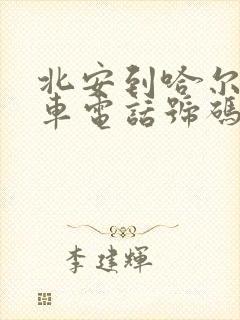 北安到哈尔
車電話號碼
李建輝